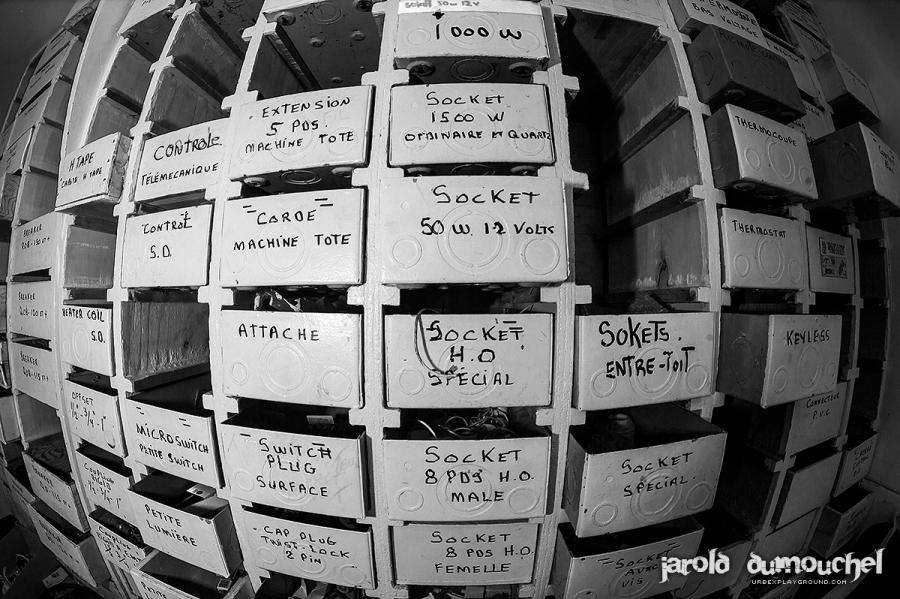 SOCKET 50W 12V
1000 W
THERMOSTAT
BAS VOLTAGE
EXTENSION
5 PDS.
MACHINE TOTE
SOCKET
1500 W
ORDINAIRE ET QUARTZ
THERMOCOUPE
H TAPE
CABLE H TAPE
CONTROLE
TÉLÉMECANIQUE
CONTROL
S.D.
CORDE
MACHINE TOTE
SOCKET
50 W. 12 VOLTS
THERMOSTAT
BREAKER
BREAKER
HEATER COIL
S.D.
ATTACHE
SOCKET
H.O
SPÉCIAL
SOKETS.
ENTRE-TOIT
KEYLESS
BREAKER
OFFSET
1/2"-3/4"-1"
MICROSWITCH
PETITE SWITCH
SWITCH
PLUG
SURFACE
SOCKET
8 PDS H.O.
MALE
SOCKET
SPECIAL.
CONNECTEUR
P.V.C
PETITE
LUMIÈRE
CAP PLUG
TWIST-LOCK
2 PIN
SOCKET
8 PDS H.O.
FEMELLE
SOCKET
AVEC
VIS
jarold dumouchel
URBEXPLAYGROUND.COM